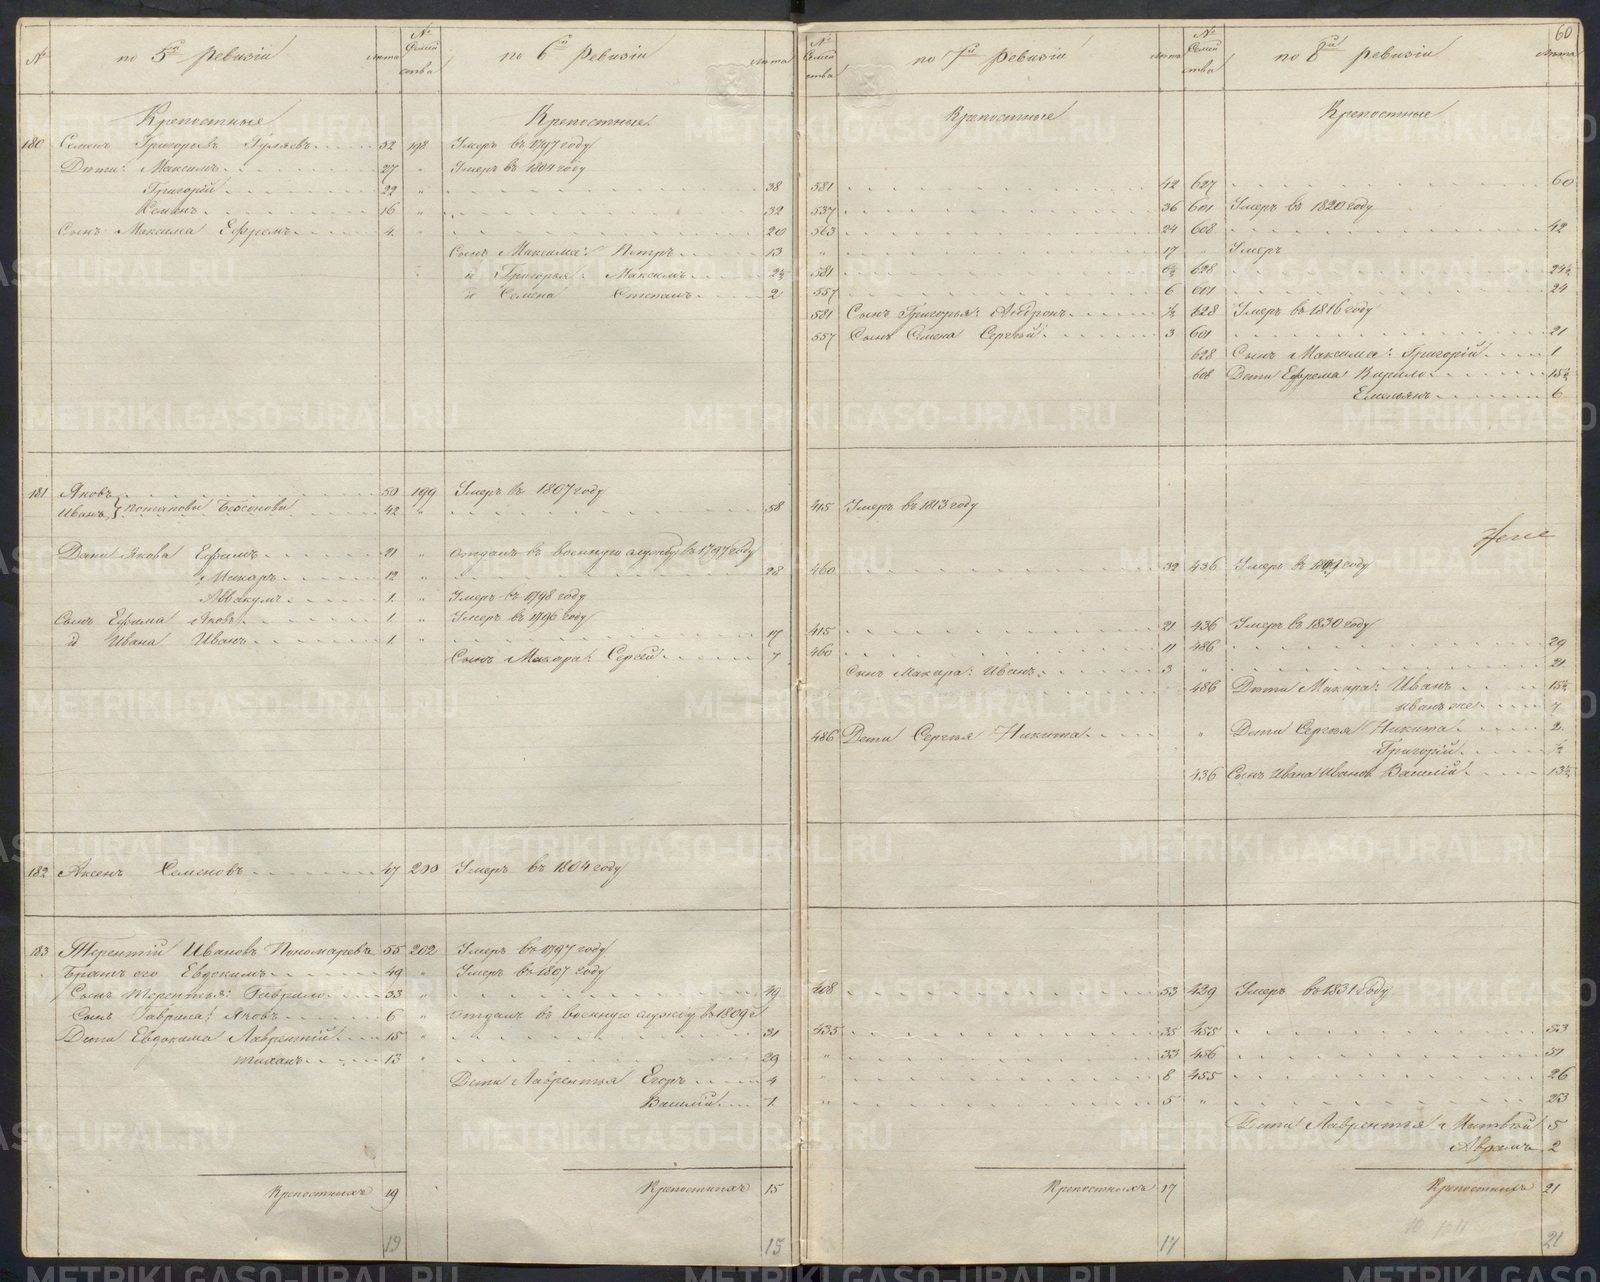 60
№ по 5й Ревизіи лѣта № Семейства по 6й Ревизіи лѣта № Семейства по 7й Ревизіи лѣта № Семейства по 8й Ревизіи лѣта
Крепостные Крепостные Крепостные Крепостные
180 Семенъ Григорьевъ Гуляевъ 52 198 Умеръ въ 1797 году
Дѣти: Максимъ 27 " Умеръ въ 1804 году
Григорій 22 " 38 581 42 627 60
Семенъ 16 " 32 537 36 601 Умеръ въ 1820 году
Сынъ Максима Ефремъ 4 " 20 563 24 608 42
Сынъ Максима: Петръ 13 " 17 " Умеръ
и Григорья: Максимъ 2½ 581 6½ 628 24½
и Семена Степанъ 2 557 6 601 24
581 Сынъ Григорья: Андронъ ½ 628 Умеръ въ 1816 году
557 Сынъ Семена Сергѣй 3 601 21
628 Сынъ Максима: Григорій 1
608 Дети Ефрема Кирило 15½
Емельянъ 6
181 Яковъ 50 199 Умеръ въ 1807 году
Иванъ } Потаповы Безсоновы 42 " 58 415 Умеръ въ 1813 году
Дети Якова Ефимъ 21 " отданъ въ военную службу въ 1797 году
Макаръ 12 " 28 460 32 436 Умеръ въ году
Аввакумъ 1 " Умеръ въ 1798 году
Сынъ Ефима Яковъ 1 " Умеръ въ 1796 году
и Ивана Иванъ 1 " 17 415 21 436 Умеръ въ 1830 году
Сынъ Макара: Сергей 7 460 11 486 29
Сынъ Макара: Иванъ 3 " 21
486 Дѣти Макара: Иванъ 15½
Иванъ же 7
486 Дети Сергѣя Никита " Дети Сергѣя Никита 2
Григорій ½
436 Сынъ Ивана Иванов Василій 13½
182 Аксенъ Семеновъ 47 200 Умеръ въ 1804 году
183 Терентій Ивановъ Пономаревъ 55 202 Умеръ въ 1797 году
Братъ его Евдокимъ 49 " Умеръ въ 1807 году
Сынъ Терентья: Гаврило 33 " 49 408 53 439 Умеръ въ 1831 году
Сынъ Гаврила: Яковъ 6 " отданъ въ военную службу въ 1809 г
Дети Евдокима Лаврентій 15 " 31 435 35 455 53
Тиханъ 13 " 29 " 33 456 51
Дети Лаврентья Егоръ 4 " 8 455 26
Василій 1 " 5 " 23
Дети Лаврентья Матвѣй 5
Аврамъ 2
Крепостныхъ 19 Крепостныхъ 15 Крепостныхъ 17 Крепостныхъ 21
19 15 17 21
METRIKI.GASO-URAL.RU